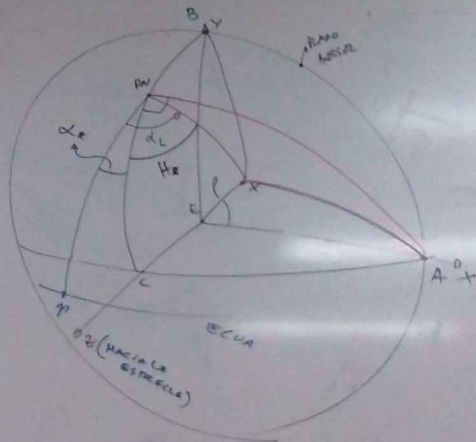 B Y
PLANO
PN
α
αL
H
X
E
ρ
A
C
ECUA
(HACIA LA
ESTRELLA)